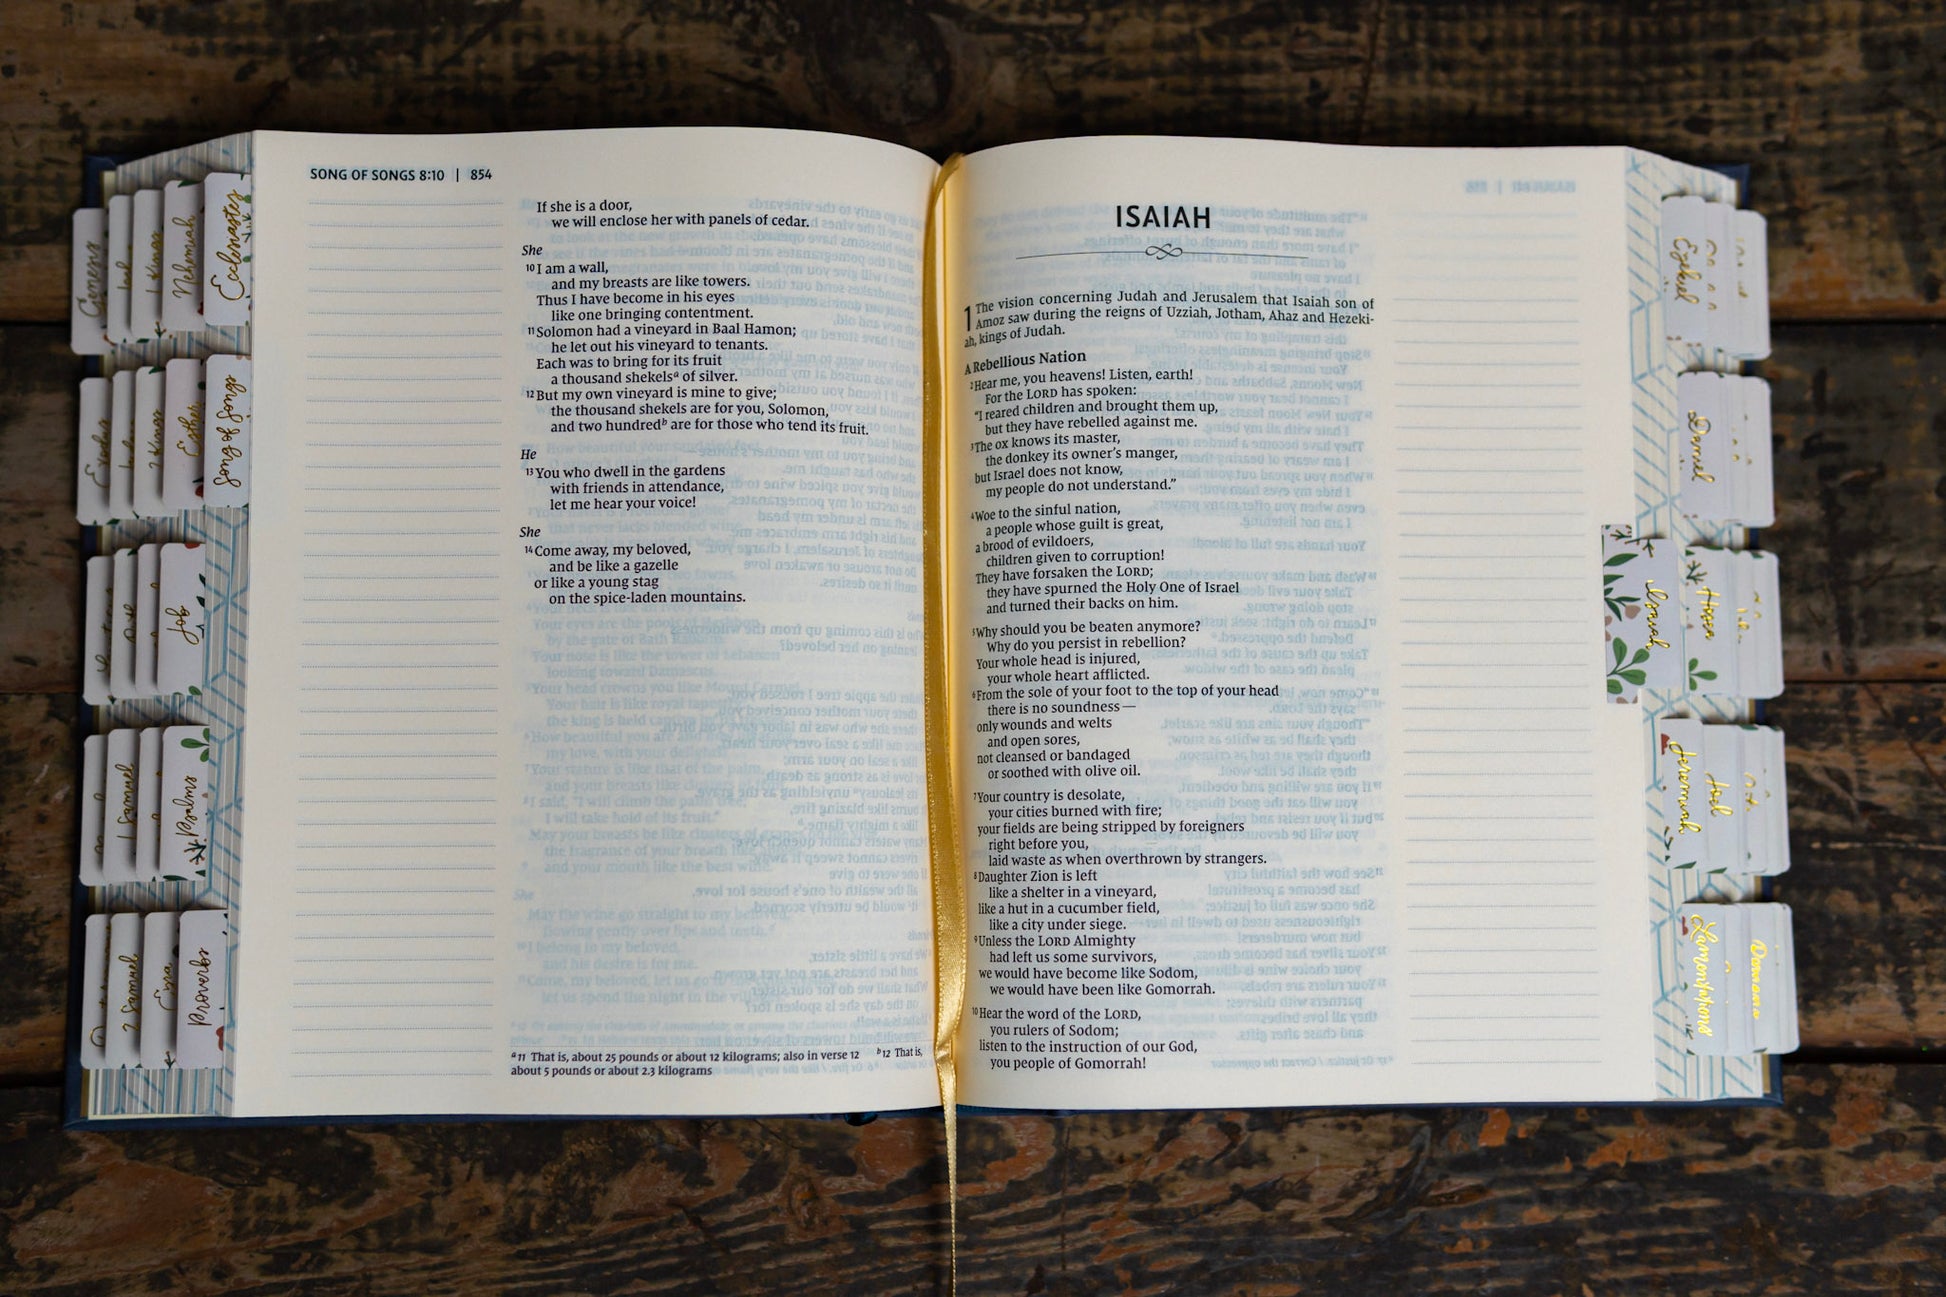 SONG OF SONGS 8:10 | 854
If she is a door,
we will enclose her with panels of cedar.
She
10 I am a wall,
and my breasts are like towers.
Thus I have become in his eyes
like one bringing contentment.
11 Solomon had a vineyard in Baal Hamon;
he let out his vineyard to tenants.
Each was to bring for its fruit
a thousand shekelsa of silver.
12 But my own vineyard is mine to give;
the thousand shekels are for you, Solomon,
and two hundredb are for those who tend its fruit.
He
13 You who dwell in the gardens
with friends in attendance,
let me hear your voice!
She
14 Come away, my beloved,
and be like a gazelle
or like a young stag
on the spice-laden mountains.
a 11 That is, about 25 pounds or about 12 kilograms; also in verse 12 b 12 That is,
about 5 pounds or about 2.3 kilograms
ISAIAH
1 The vision concerning Judah and Jerusalem that Isaiah son of
Amoz saw during the reigns of Uzziah, Jotham, Ahaz and Hezeki-
ah, kings of Judah.
A Rebellious Nation
2 Hear me, you heavens! Listen, earth!
For the LORD has spoken:
“I reared children and brought them up,
but they have rebelled against me.
3 The ox knows its master,
the donkey its owner’s manger,
but Israel does not know,
my people do not understand.”
4 Woe to the sinful nation,
a people whose guilt is great,
a brood of evildoers,
children given to corruption!
They have forsaken the LORD;
they have spurned the Holy One of Israel
and turned their backs on him.
5 Why should you be beaten anymore?
Why do you persist in rebellion?
Your whole head is injured,
your whole heart afflicted.
6 From the sole of your foot to the top of your head
there is no soundness —
only wounds and welts
and open sores,
not cleansed or bandaged
or soothed with olive oil.
7 Your country is desolate,
your cities burned with fire;
your fields are being stripped by foreigners
right before you,
laid waste as when overthrown by strangers.
8 Daughter Zion is left
like a shelter in a vineyard,
like a hut in a cucumber field,
like a city under siege.
9 Unless the LORD Almighty
had left us some survivors,
we would have become like Sodom,
we would have been like Gomorrah.
10 Hear the word of the LORD,
you rulers of Sodom;
listen to the instruction of our God,
you people of Gomorrah!
Genesis
1 Kings
Nehemiah
Ecclesiastes
Exodus
2 Kings
Esther
Song of Songs
Job
1 Samuel
Psalms
2 Samuel
Ezra
Proverbs
Ezekiel
Daniel
Isaiah
Hosea
Jeremiah
Joel
Lamentations
Romans